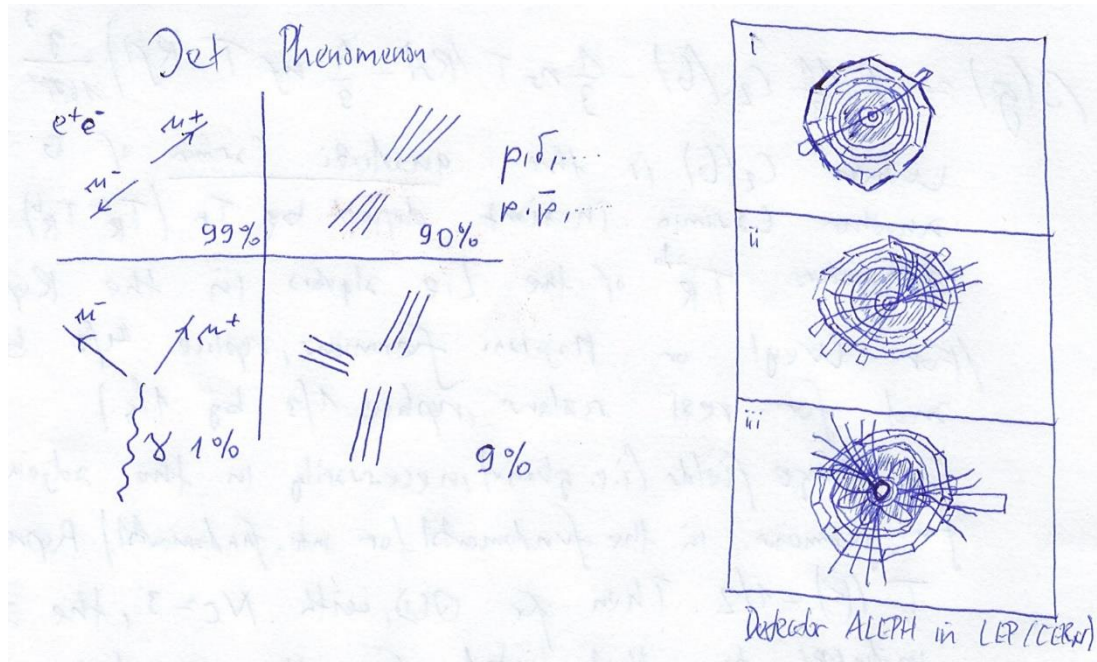 Jet Phenomenon
e⁺e⁻
μ⁺
μ⁻
99%
90%
p,p̄,...
μ⁻
μ⁺
γ 1%
9%
i
ii
iii
Detector ALEPH in LEP (CERN)